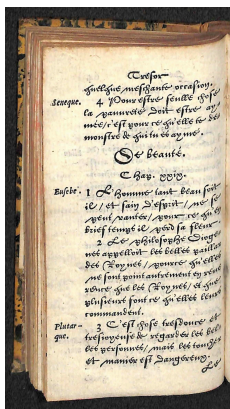 Tresor
quelque meschante occasion.
Seneque. 4 Pour estre seulle chose
la pauvreté doit estre ay
mée / c'est pour ce qu'elle te des
monstre de qui tu es aymé.
De beauté.
Chap. xxix.
Eusebe. 1 L'homme tant beau soit
il / et sain d'esprit / ne se
peut vanter / pour ce qu'en
brief temps il perd sa fleur.
2 Le philosophe Dioge
nes appelloit les belles paillar
des Roynes / pource qu'elles
ne sont point autrement en reue
rence que les Roynes / et que
plusieurs font ce qu'elles leur
commandent.
Plutar- 3 C'est chose tresdouce et
que. tresioyeuse de regarder les bel
les personnes / mais les toucher
et manier est dangereux.
Le